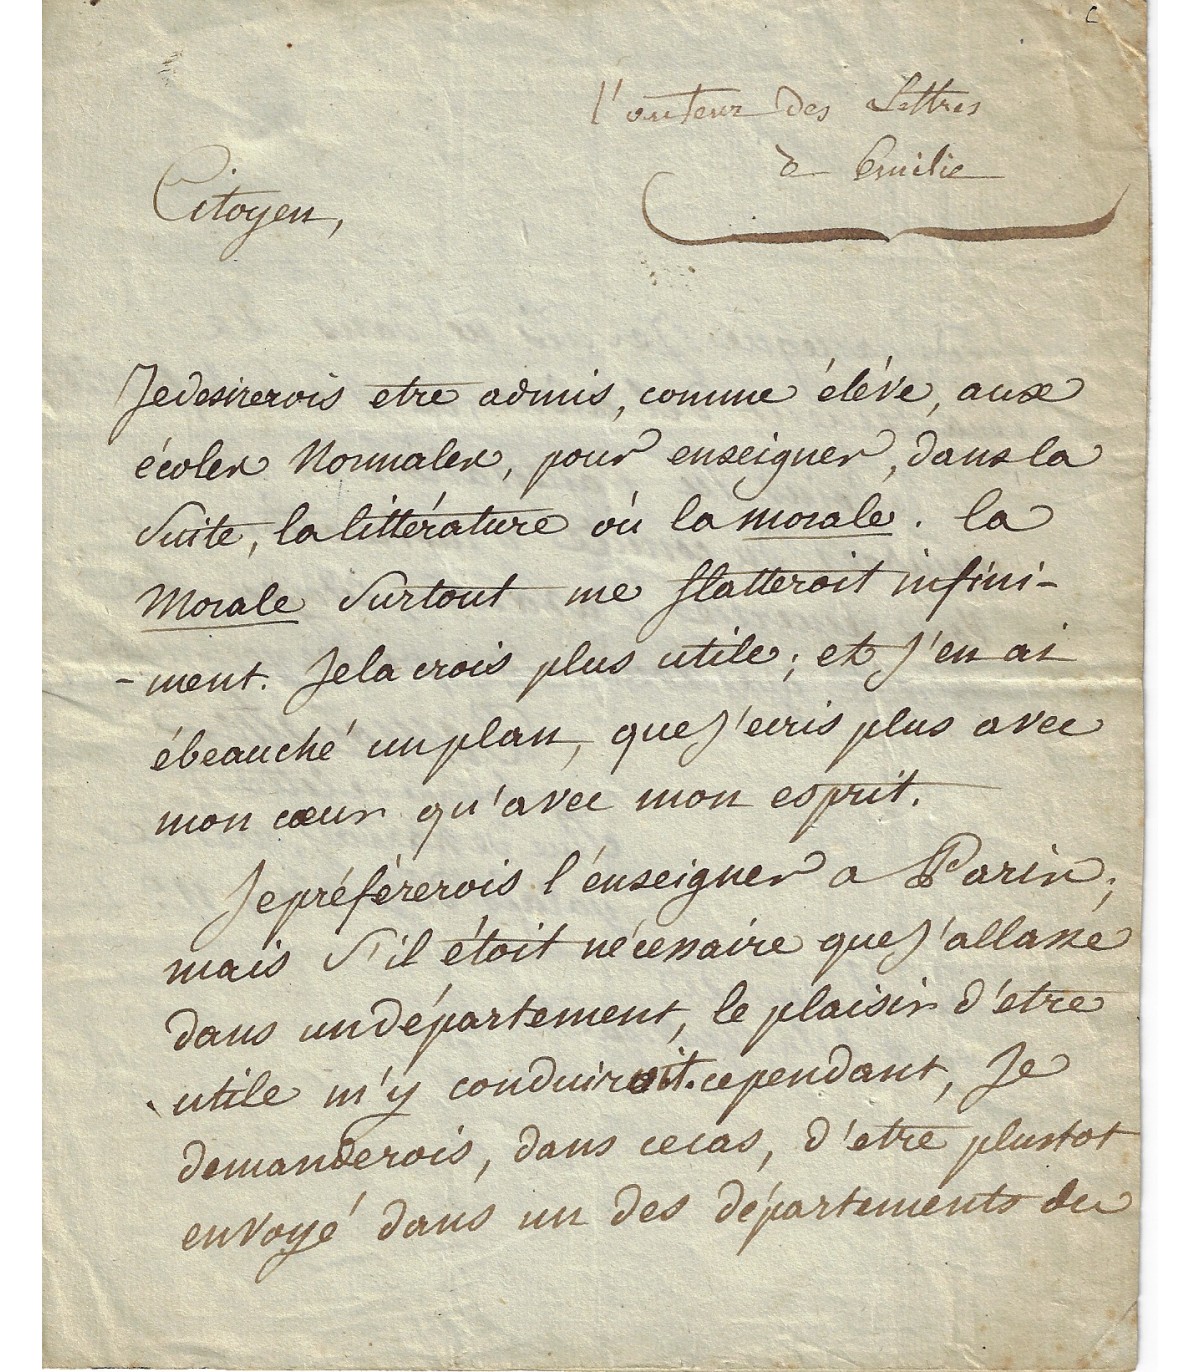 c
l'auteur des Lettres
à Emilie
Citoyen,
Je desirerois etre admis, comme éléve, aux
écoles Normales, pour enseigner, dans la
Suite, la littérature où la morale. la
Morale Surtout me flatteroit infini-
-ment. Je la crois plus utile; et J'en ai
ébeauché un plan, que J'ecris plus avec
mon cœur qu'avec mon esprit.
Je préférerois l'énseigner a Paris;
mais S'il étoit nécessaire que J'allasse
dans un département, le plaisir d'être
utile m'y conduiroit. cependant, Je
demanderois, dans ce cas, d'etre plustot
envoyé dans un des départements du